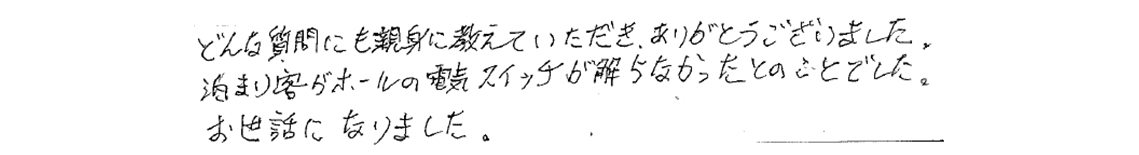 どんな質問にも親身に教えていただき、ありがとうございました。
泊まり客がホールの電気スイッチが解らなかったとのことでした。
お世話になりました。